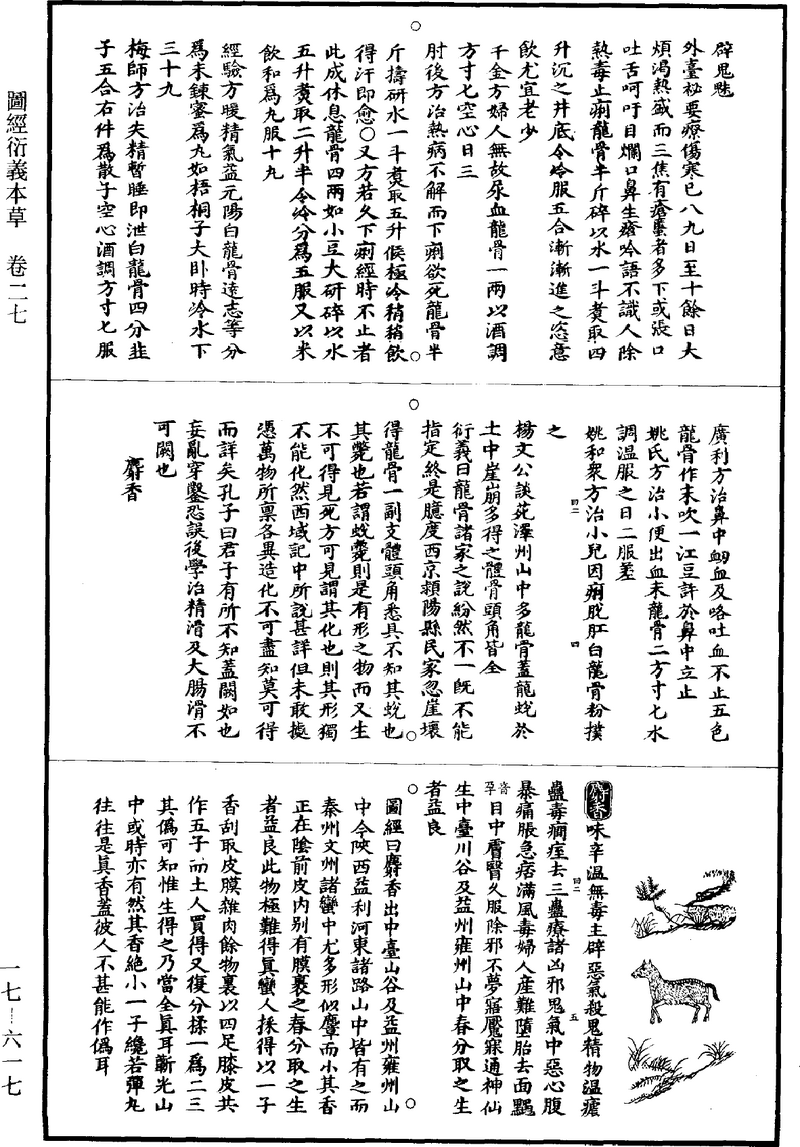 圖經衍義本草 卷二七
一七—六一七
辟鬼魅
外臺祕要療傷寒已八九日至十餘日大
煩渴熱盛而三焦有瘡䘌者多下或張口
吐舌呵吁目爛口鼻生瘡吟語不識人除
熱毒止痢龍骨半斤碎以水一斗煑取四
升沉之井底令冷服五合漸漸進之恣意
飲尤宜老少
千金方婦人無故尿血龍骨一兩以酒調
方寸七空心日三
肘後方治熱病不解而下痢欲死龍骨半
斤擣研水一斗煑取五升候極冷稍稍飲
得汗即愈○又方若久下痢經時不止者
此成休息龍骨四兩如小豆大研碎以水
五升煑取二升半令冷分爲五服又以米
飲和爲丸服十丸
經驗方暖精氣益元陽白龍骨遠志等分
爲末鍊蜜爲丸如梧桐子大卧時冷水下
三十九
梅師方治失精暫睡即泄白龍骨四分韭
子五合右件爲散子空心酒調方寸七服
廣利方治鼻中衂血及咯吐血不止五色
龍骨作末吹一江豆許於鼻中立止
姚氏方治小便出血末龍骨二方寸七水
調温服之日二服差
姚和衆方治小兒因痢脫肛白龍骨粉撲
之
楊文公談苑澤州山中多龍骨蓋龍蛻於
土中崖崩多得之體骨頭角皆全
衍義曰龍骨諸家之說紛然不一旣不能
指定終是臆度西京潁陽縣民家忽崖壞
得龍骨一副支體頭角悉具不知其蛻也
其斃也若謂蛻斃則是有形之物而又生
不可得見死方可見謂其化也則其形獨
不能化然西域記中所說甚詳但未敢據
憑萬物所禀各異造化不可盡知莫可得
而詳矣孔子曰君子有所不知蓋闕如也
妄亂穿鑿恐誤後學治精滑及大腸滑不
可闕也
麝香
麝香味辛温無毒主辟惡氣殺鬼精物温瘧
蠱毒癇痓去三蟲療諸凶邪鬼氣中惡心腹
暴痛脹急痞滿風毒婦人産難墮胎去面䵟
音孕目中膚瞖久服除邪不夢寤魘寐通神仙
生中臺川谷及益州雍州山中春分取之生
者益良
圖經曰麝香出中臺山谷及益州雍州山
中今陜西益利河東諸路山中皆有之而
秦州文州諸蠻中尤多形似麞而小其香
正在陰前皮内别有膜裹之春分取之生
者益良此物極難得眞蠻人採得以一子
香刮取皮膜雜肉餘物裹以四足膝皮共
作五子而土人買得又復分揉一爲二三
其僞可知惟生得之乃當全眞耳蘄光山
中或時亦有然其香絶小一子纔若彈丸
往往是眞香蓋彼人不甚能作僞耳